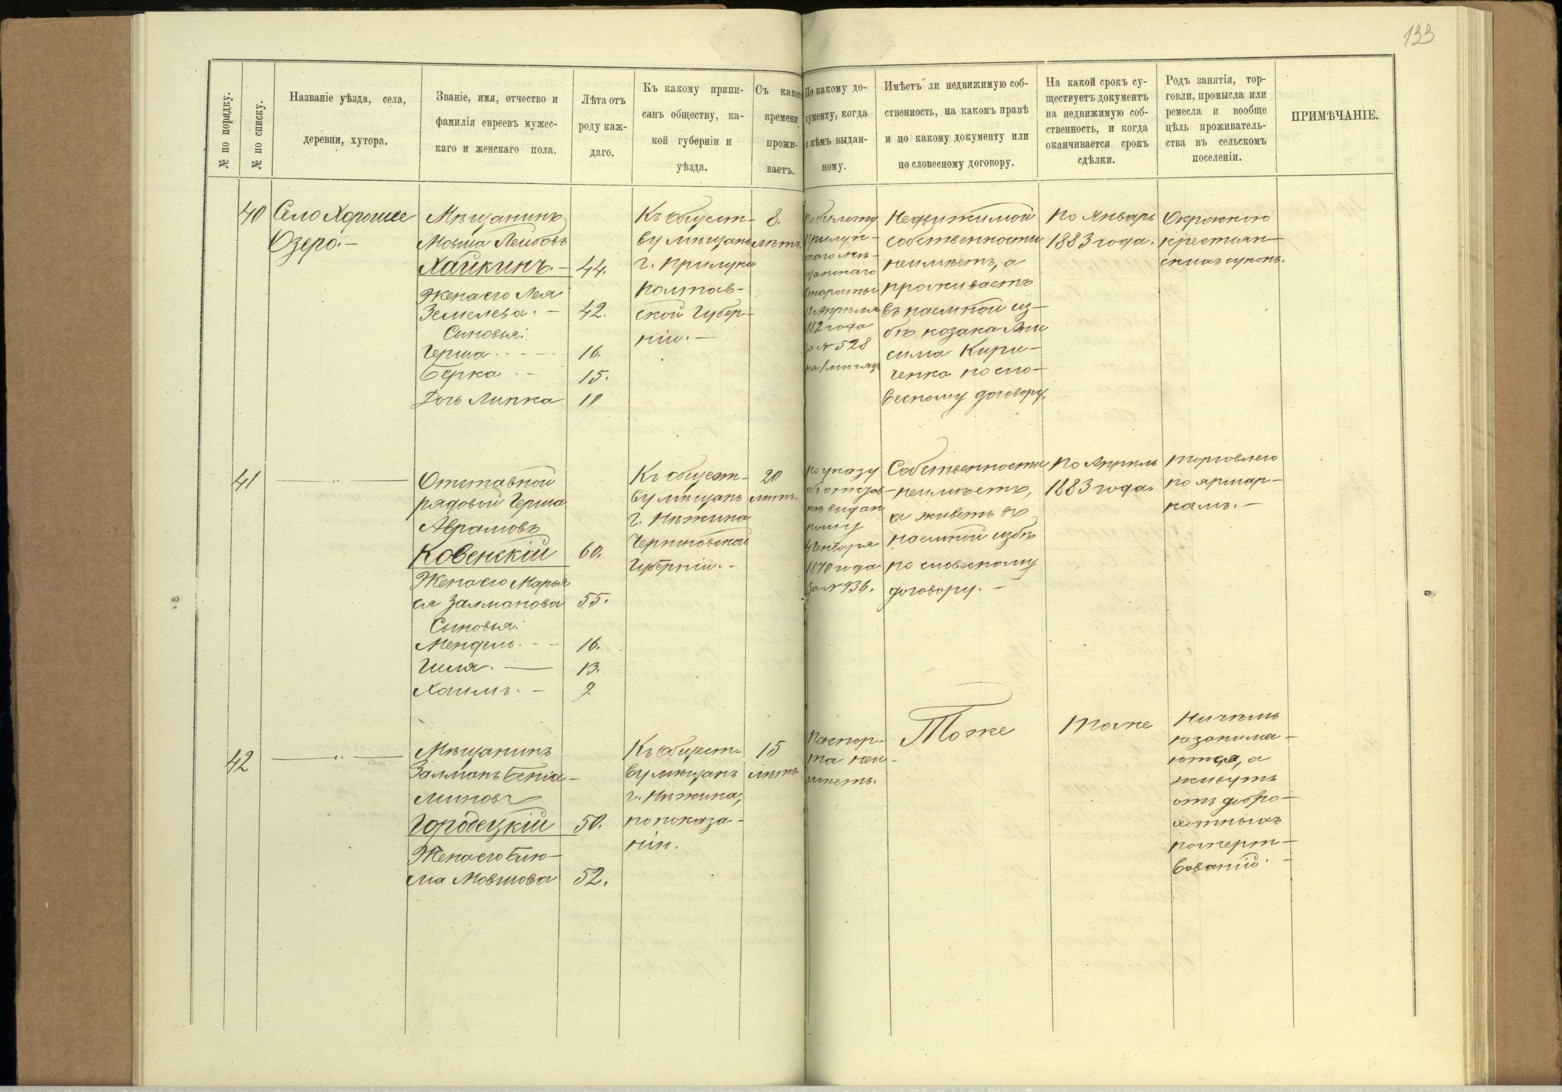 133
№ по порядку.
№ по списку.
Названіе уѣзда, села,
деревни, хутора.
Званіе, имя, отчество и
фамилія евреевъ мужес-
каго и женскаго пола.
Лѣта отъ
роду каж-
даго.
Къ какому припи-
санъ обществу, ка-
кой губерніи и
уѣзда.
Съ какого
времени
прожи-
ваетъ.
По какому до-
кументу, когда
и кѣмъ выдан-
ному.
Имѣетъ ли недвижимую соб-
ственность, на какомъ правѣ
и по какому документу или
по словесному договору.
На какой срокъ су-
ществуетъ документъ
на недвижимую соб-
ственность, и когда
оканчивается срокъ
сдѣлки.
Родъ занятія, тор-
говли, промысла или
ремесла и вообще
цѣль проживатель-
ства въ сельскомъ
поселеніи.
ПРИМѢЧАНІЕ.
40
Село Хорошее
Озеро.–
Мѣщанинъ
Мовша Лейбовъ
Хайкинъ.– 44.
Жена его Лея
Земелева.– 42.
Сыновья:
Герша 16.
Берка 15.
Дочь Липка 11
Къ общест-
ву мѣщанъ
г. Прилуки
Полтав-
ской Губер-
ніи.–
8.
лѣтъ.
По билету
Прилук-
скаго мѣ-
щанскаго
Старосты
Апрѣля
года
за № 528
Недвижимой
собственности
неимѣетъ, а
проживаетъ
въ наемной из-
бѣ козака Ани
сима Кири-
ченка по сло-
весному договору.
По Январь
1883 года.
Окраскою
крестьян-
скихъ суконъ.
41
— „ —
Отставной
рядовой Герша
Аврамовъ
Ковенскій 60.
Жена его Марья
ся Залманова 55.
Сыновья:
Мендель.-- 16.
Гиля.— 13.
Хаимъ.– 9.
Къ общест-
ву мѣщанъ
г. Нѣжина
Черниговской
Губерніи.–
20
лѣтъ.
По указу
объ отстав-
кѣ выдан
ному
Генваря
1870 года
за № 936.
Собственности
неимѣетъ,
а живетъ въ
наемной избѣ
по словесному
договору.–
По Апрѣль
1883 года.
Торговлею
по ярмар-
камъ.–
42
— „ —
Мѣщанинъ
Залманъ Бенiа-
миновъ
Городецкій 50.
Жена его Блю-
ма Мовшова 52.
Къ общест-
ву мѣщанъ
г. Нѣжина,
по показа-
нію.
15
лѣтъ
Паспор-
та неи-
мѣетъ.
Тоже
Тоже
Ничѣмъ
незанима-
ются, а
живутъ
отъ добро-
хотныхъ
пожерт-
вованій.–